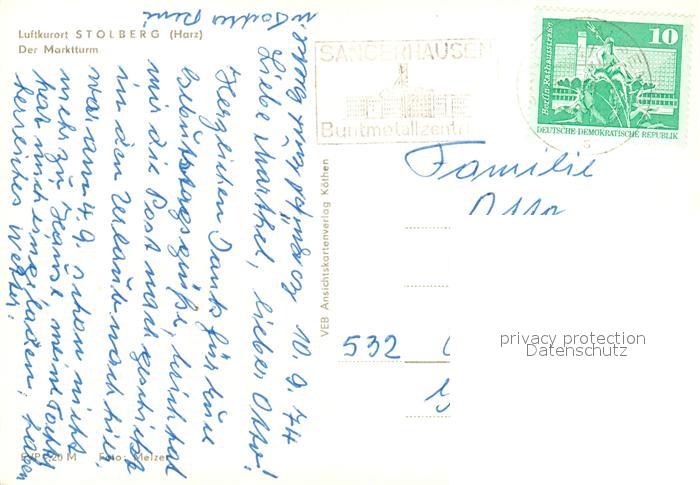 Luftkurort STOLBERG (Harz)
Der Marktturm
10. 9. 74
Liebe Marthel, lieber Otto!
Herzlichen Dank für Eure
Geburtstagsgrüße, mich hat
mir die Post nachgeschickt
in den Urlaub nach hier,
war am 4. 9. schon nicht
mehr zu Hause meine Tochter
hat mich eingeladen, haben
herrliches Wetter.
EVP -,20 M Foto: Melzer
VEB Ansichtskartenverlag Köthen
SANGERHAUSEN
Buntmetallzentr
10
Berlin, Rathausstraße
DEUTSCHE DEMOKRATISCHE REPUBLIK
Familie
Otto
532
privacy protection
Datenschutz